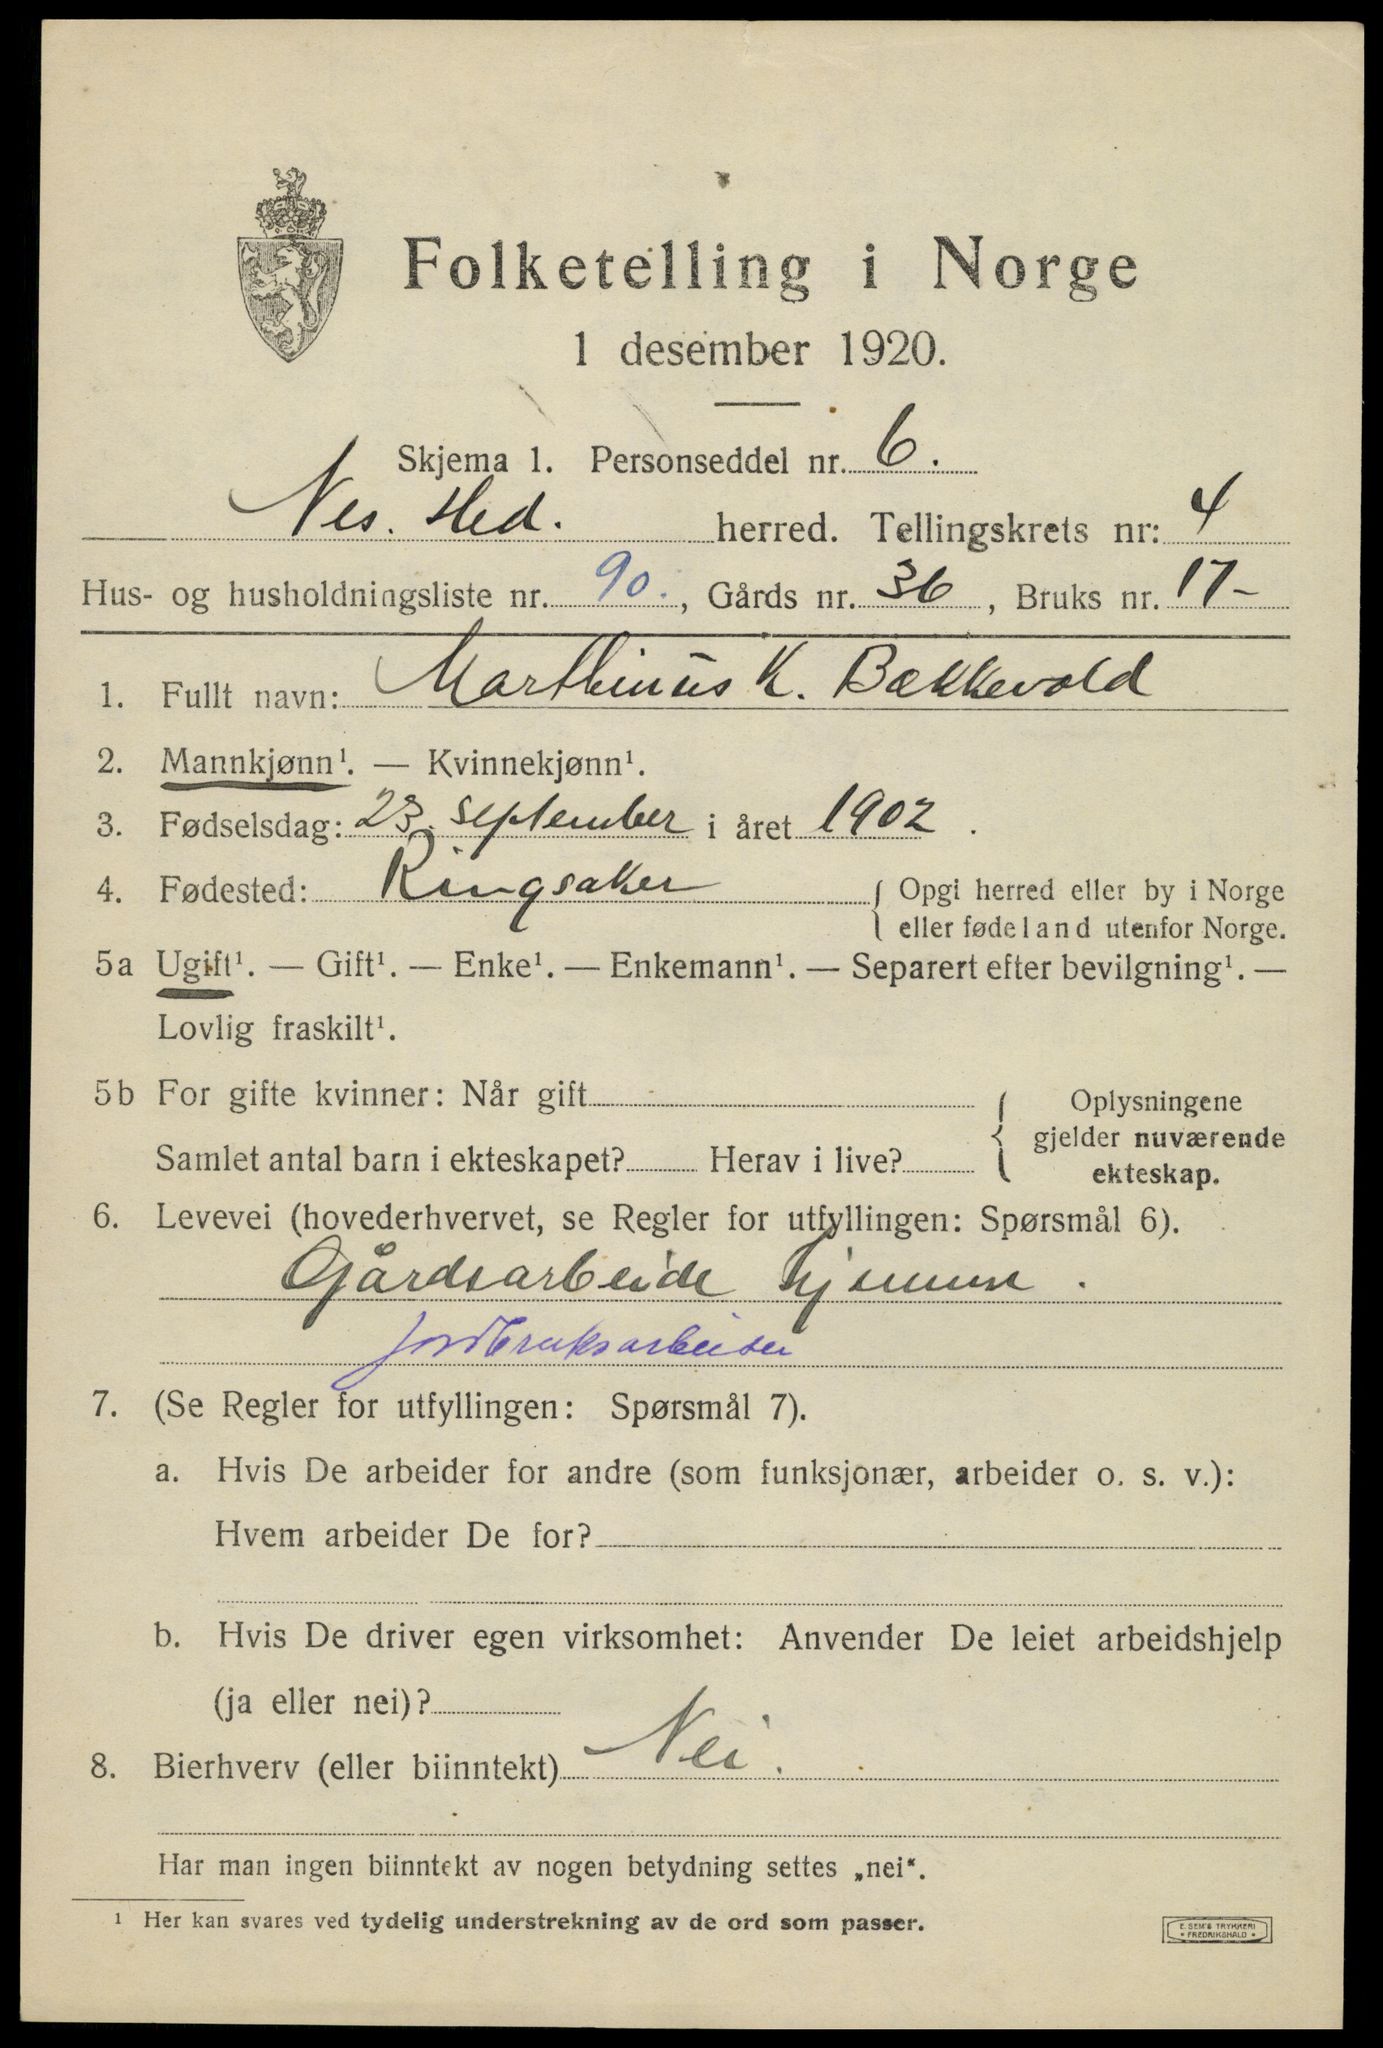 Folketelling i Norge
1 desember 1920.
Skjema 1. Personseddel nr. 6.
Nes. Hed. herred. Tellingskrets nr: 4
Hus- og husholdningsliste nr. 90., Gårds nr. 36, Bruks nr. 17-
1. Fullt navn: Marthinius K. Bækkevold
2. Mannkjønn¹. — Kvinnekjønn¹.
3. Fødselsdag: 23. september i året 1902.
4. Fødested: Ringsaker { Opgi herred eller by i Norge
eller fødeland utenfor Norge.
5a Ugift¹. — Gift¹. — Enke¹. — Enkemann¹. — Separert efter bevilgning¹. —
Lovlig fraskilt¹.
5b For gifte kvinner: Når gift
Samlet antal barn i ekteskapet? Herav i live?
{ Oplysningene
gjelder nuværende
ekteskap.
6. Levevei (hovederhvervet, se Regler for utfyllingen: Spørsmål 6).
Gårdsarbeide hjemme.
jordbruksarbeider
7. (Se Regler for utfyllingen: Spørsmål 7).
a. Hvis De arbeider for andre (som funksjonær, arbeider o. s. v.):
Hvem arbeider De for?
b. Hvis De driver egen virksomhet: Anvender De leiet arbeidshjelp
(ja eller nei)?
8. Bierhverv (eller biinntekt) Nei.
Har man ingen biinntekt av nogen betydning settes „nei“.
¹ Her kan svares ved tydelig understrekning av de ord som passer.
E. SEM'S TRYKKERI
* FREDRIKSHALD *